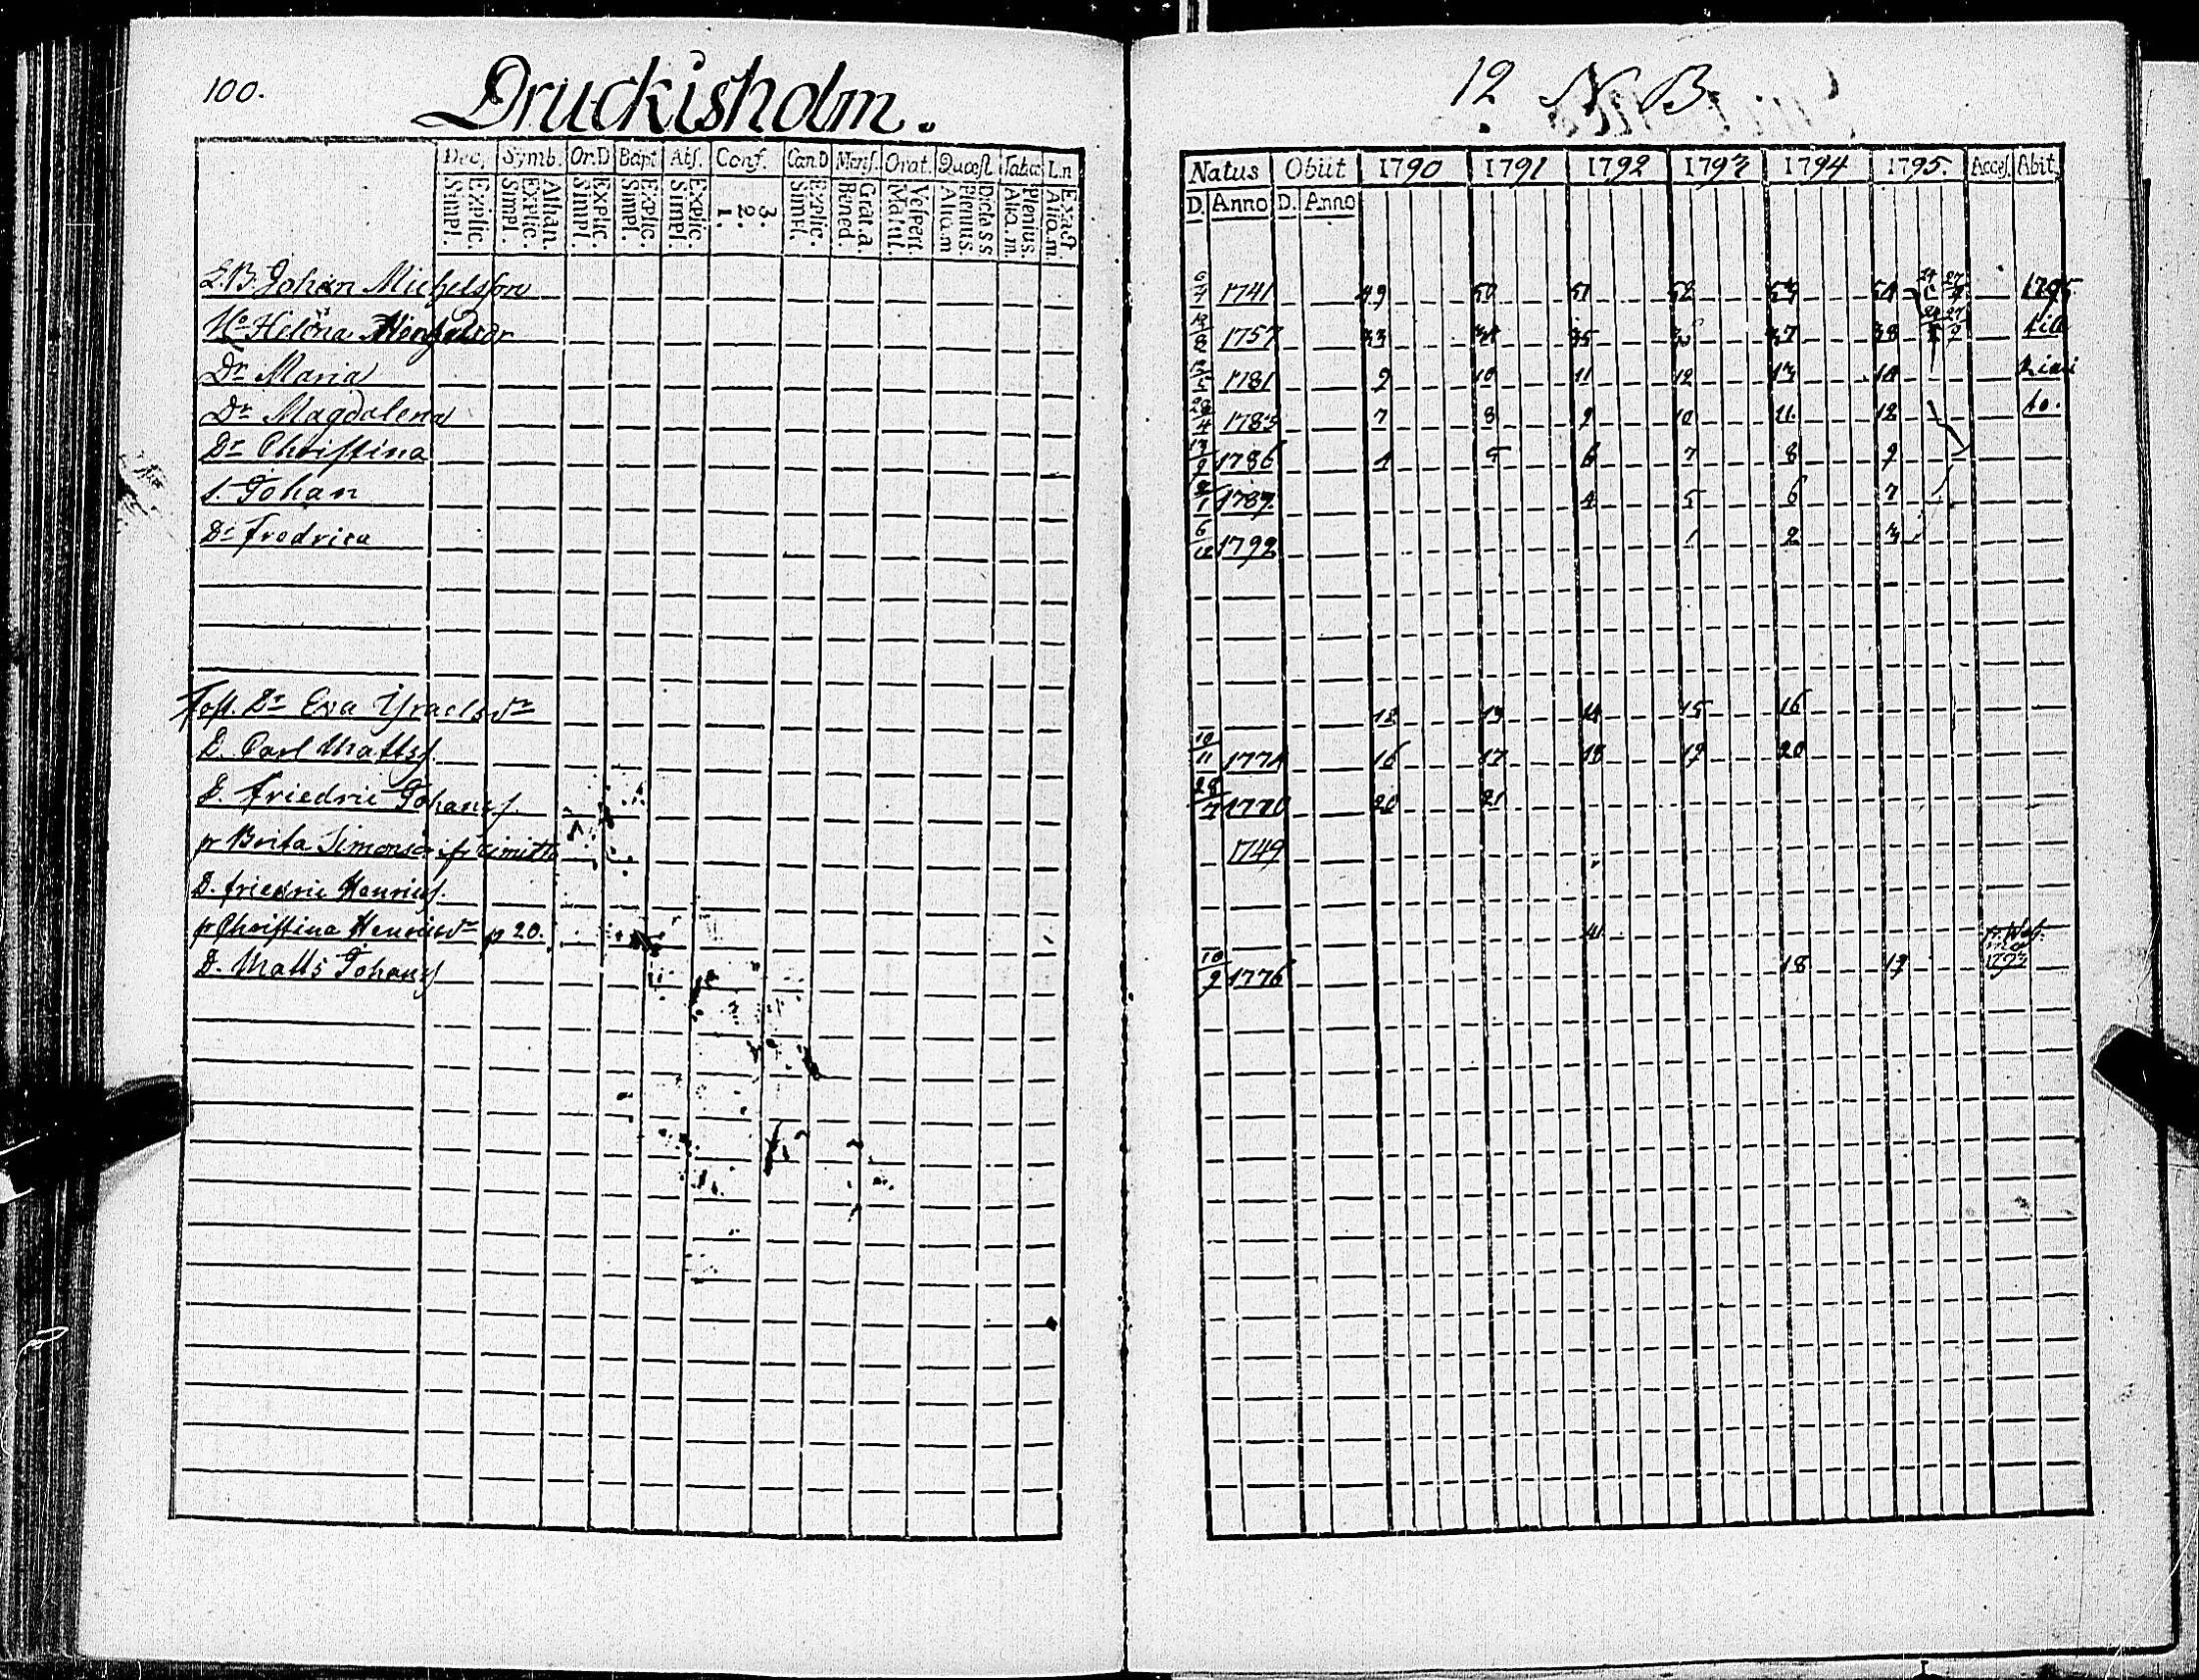 100. Druckisholm.
Dec, Symb. Or.D Bapt Abs. Conf. Can.D Mens. Orat. Quæst Tabæ L.n
Simpl. Explic. Simpl. Explic. Athan. Simpl. Explic. Simpl. Explic. Simpl. Explic. 1. 2. 3. Simpl. Explic. Bened. Grat.a. Matut. Vespert. Alia.m Plenius. Dicta s s Alia.m. Plenius. Alia.m. Exact
L.B. Johan Michelsson
Ho Helena
Dr Maria
Dr Magdalena
Dr Christina
S. Johan
Dr Fredrica
Fost. Dr Eva Ysraelsdr
D. Carl Matts
D. Friedric Johans
p Brita Simonsdr fr Kimitto
D. friedric Henrics.
p Christina Henricsdr p 20.
D. Matts Johans
12 N. B.
Natus Obiit 1790 1791 1792 1793 1794 1795. Acces. Abit.
D. Anno D. Anno
1741 49 50 51 52 53 54 1795
1757 33 34 35 36 37 38 till
1781 9 10 11 12 13 14
1783 7 8 9 10 11 12 to.
1786 4 5 6 7 8 9
1787 4 5 6 7
6/12 1792 1 2 3
12 13 14 15 16
10/11 1774 16 17 18 19 20
1770 20 21
1749
41
10/9 1776 18 19 1793